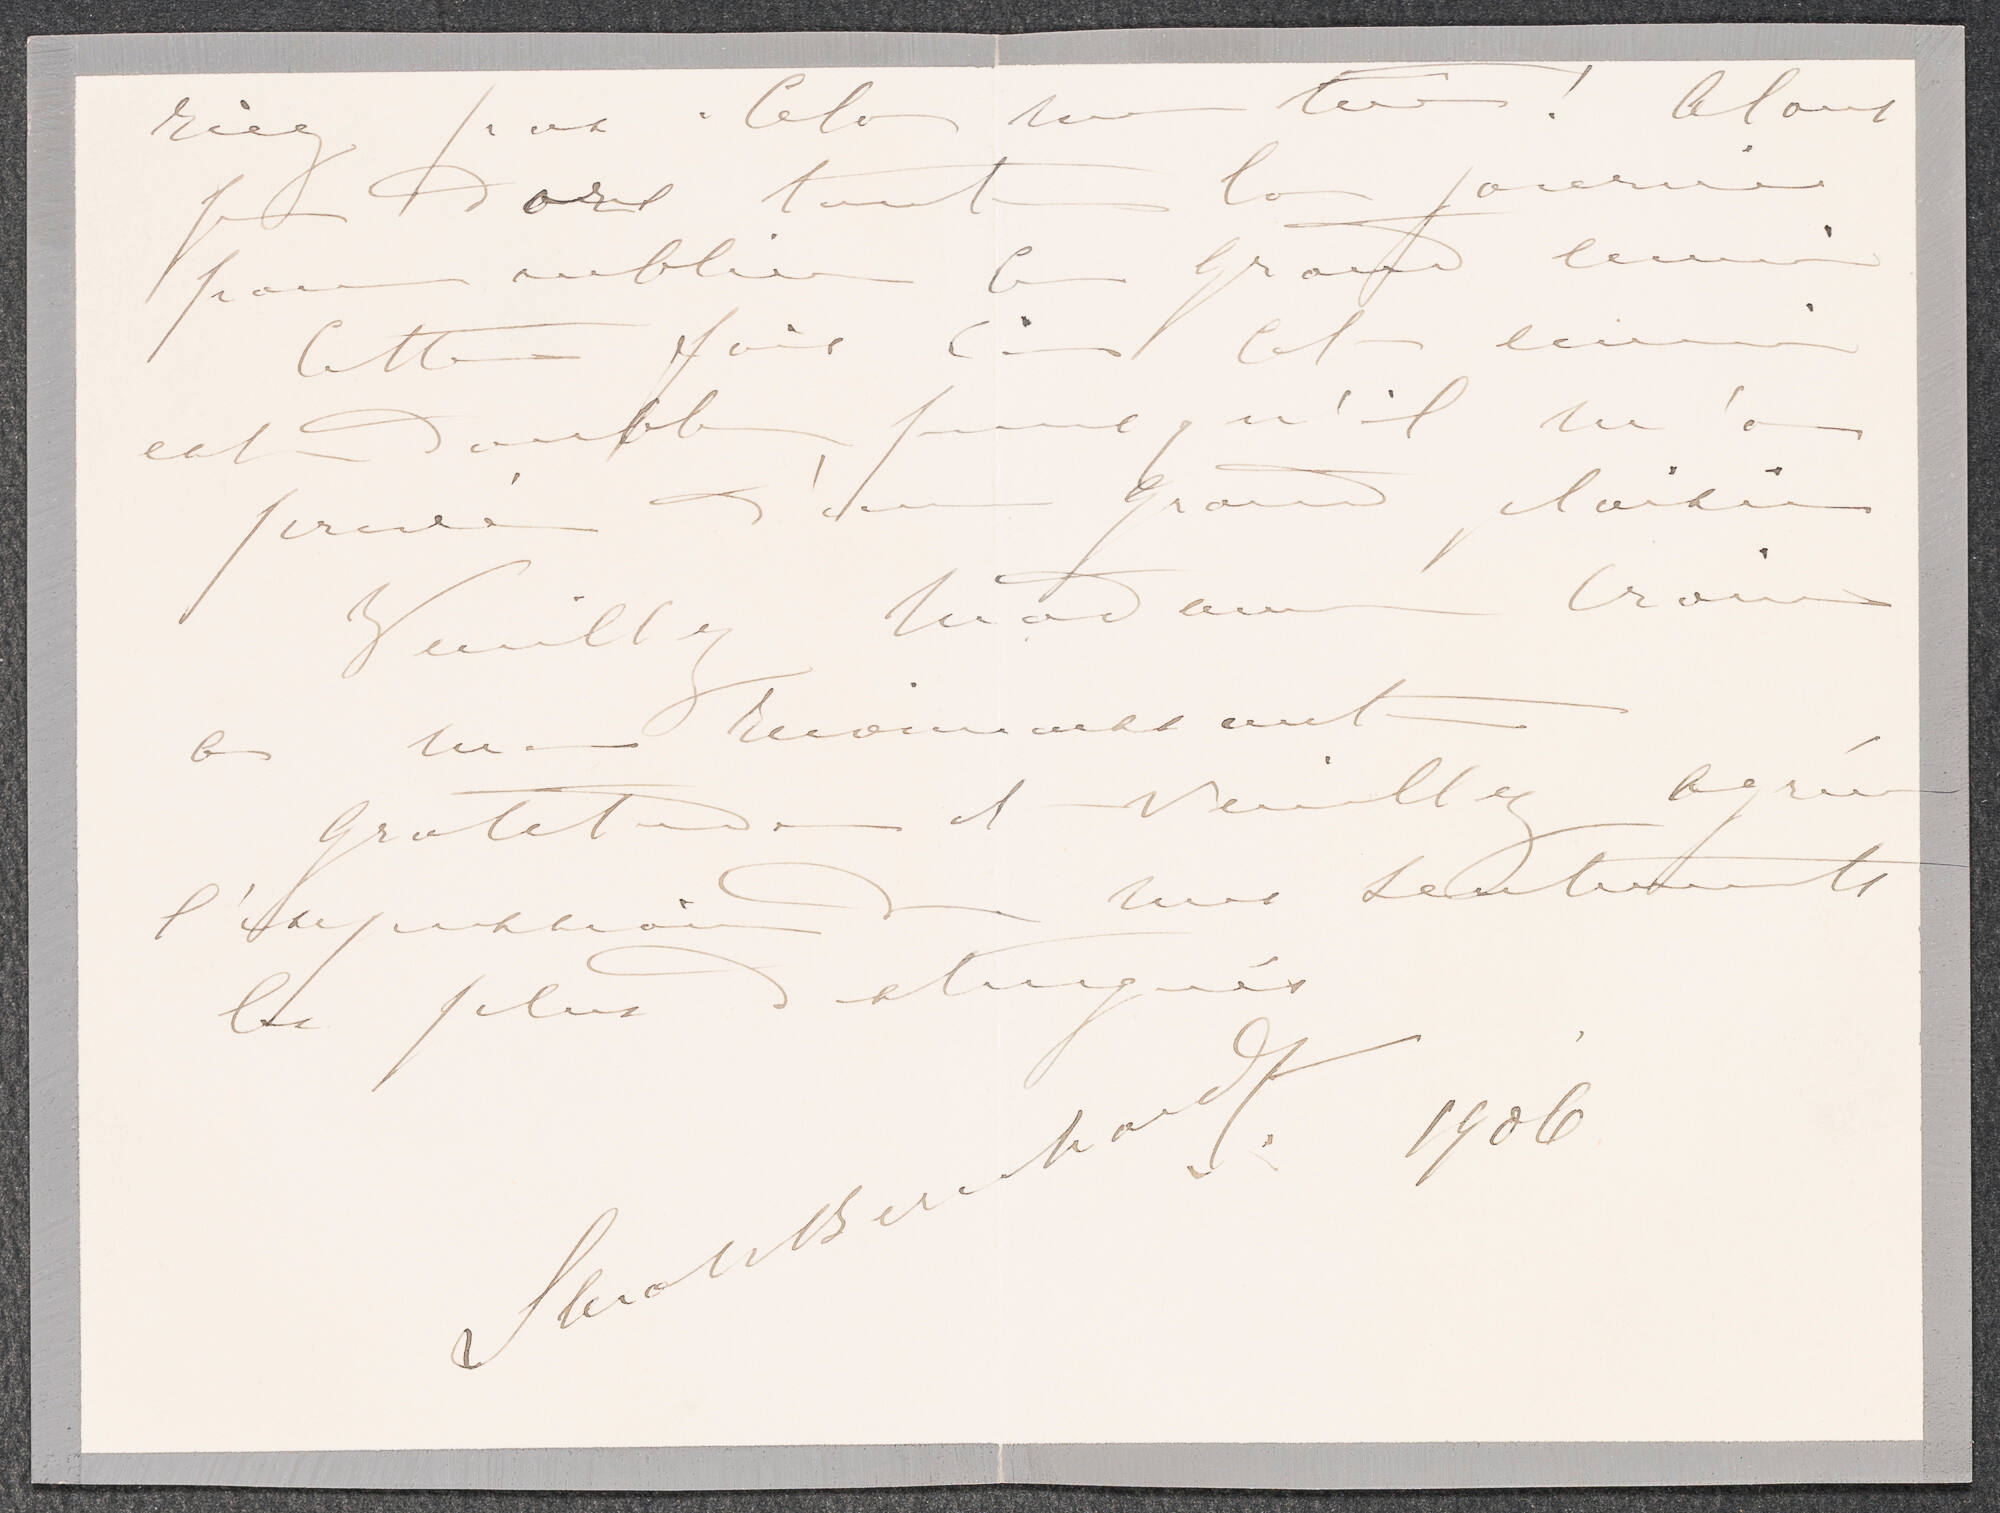 riez pas. Cela me tue! Alors
je dors toute la journée
pour oublier ce grand ennui
Cette fois ci cet ennui
est double, puisqu'il m'a
privée d'un grand plaisir
Veuillez Madame croire
a ma reconnaissante
gratitude et veuillez agréer
l'expression de mes sentiments
les plus distingués
Sarah Bernhardt
1906